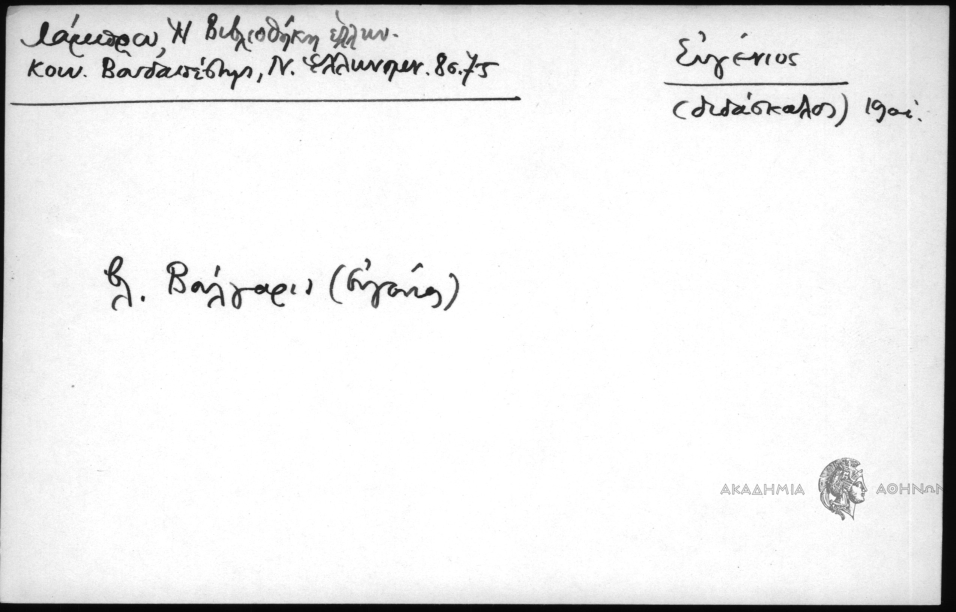 Λάμπρου, Ἡ Βιβλιοθήκη ἑλλην.
κοιν. Βουδαπέστης, Ν. Ἑλληνομν. 8σ.75
Εὐγένιος
(διδάσκαλος) 19οι.
βλ. Βούλγαρις (Εὐγένιος)
ΑΚΑΔΗΜΙΑ ΑΘΗΝΩΝ